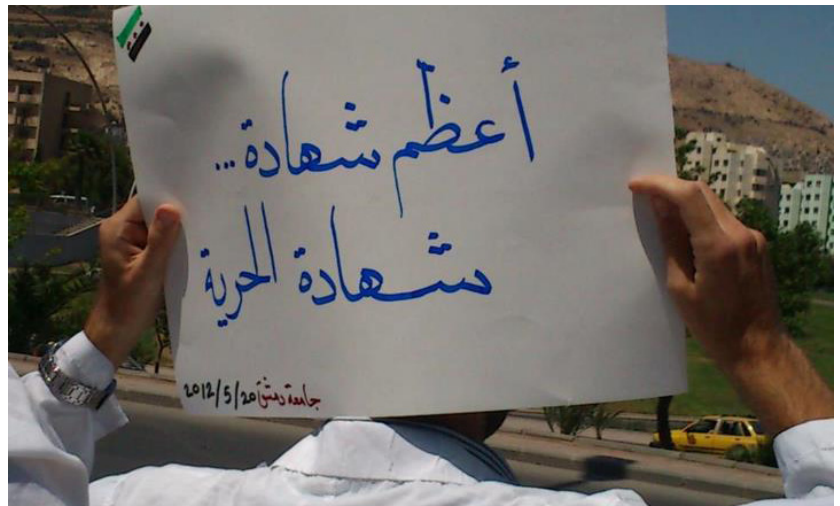 أعظم شهادة...
شهادة الحرية
جامعة دمشق 2012/5/20